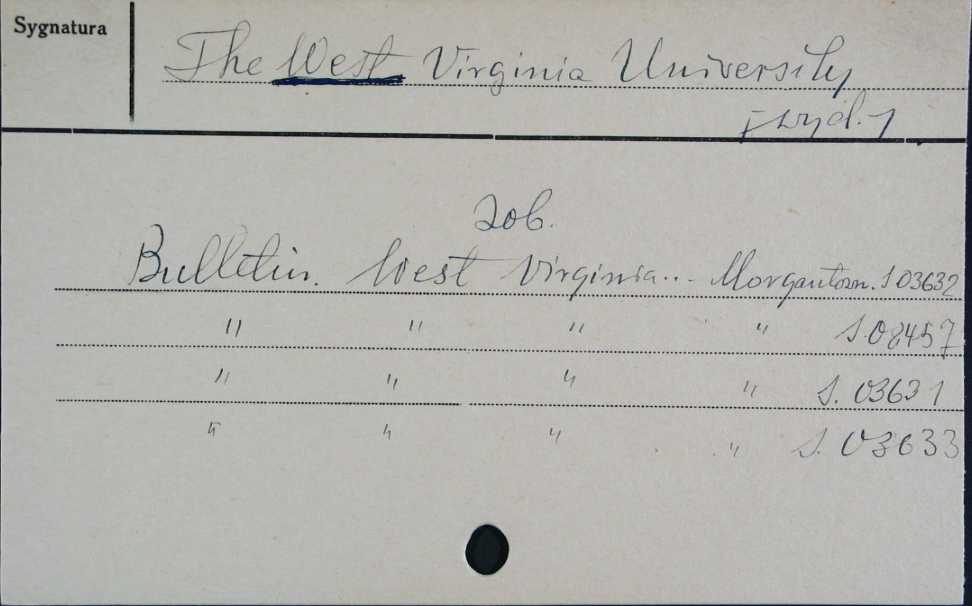 Sygnatura
The West Virginia University
[wyd.]
Zob.
Bulletin. West Virginia... Morgantown. S 03632
" " " " S. 08457
" " " " S. 03631
" " " " S. 03633